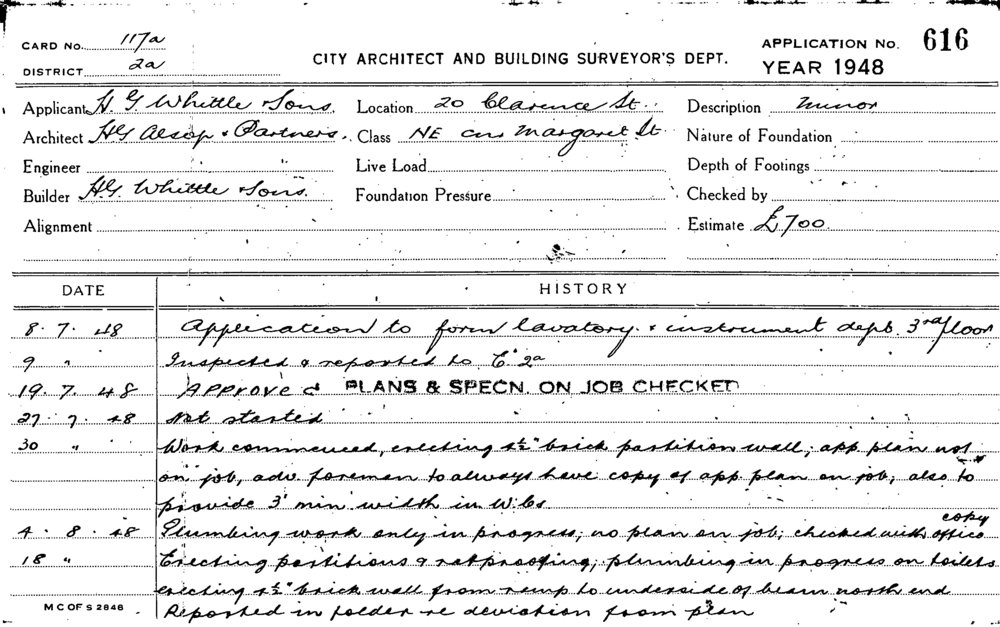 CARD No. 117a
DISTRICT 2a
CITY ARCHITECT AND BUILDING SURVEYOR'S DEPT.
APPLICATION No. 616
YEAR 1948
Applicant H. G Whittle & Sons.
Location 20 Clarence St.
Description Minor
Architect HG Alsop & Partners.
Class NE cnr Margaret St
Nature of Foundation
Engineer
Live Load
Depth of Footings
Builder H.G. Whittle & Sons.
Foundation Pressure
Checked by
Alignment
Estimate £700
DATE HISTORY
8. 7. 48 Application to form lavatory & instrument dept. 3rd floor
9 " Inspected & reported to 2a
19. 7. 48 Approved PLANS & SPECN. ON JOB CHECKED
27. 7. 48 Not started
30 " Work commenced, erecting 4½" brick partition wall; app plan not
on job, adv. foreman to always have copy of app plan on job; also to
provide 3' min width in W.Cs
4. 8. 48 Plumbing work only in progress; no plan on job; checked with office copy
18 " Erecting partitions & ratproofing; plumbing in progress on toilets
erecting 4½" brick wall from ramp to underside of beam north end
Reported in folder re deviation from plan
M C OF S 2848